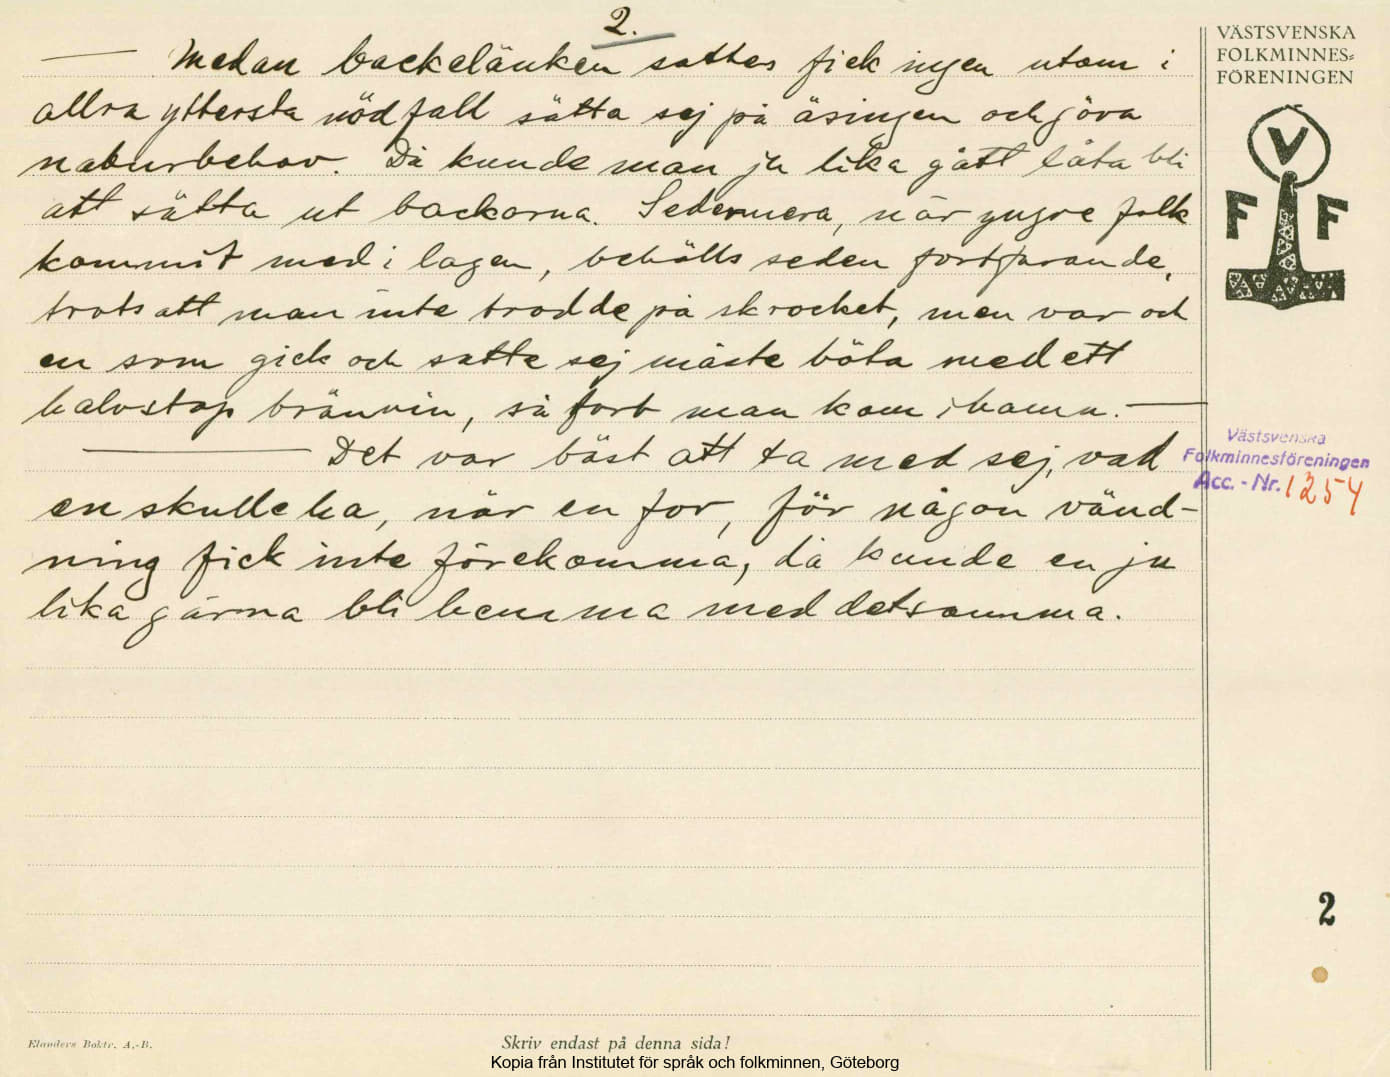 2.
— Medan backelänken sattes fick ingen utom i
allra yttersta nödfall sätta sej på äsingen och göra
naturbehov. Då kunde man ju lika gått låta bli
att sätta ut backorna. Sedermera, när yngre folk
kommit med i lagen, behölls seden fortfarande,
trots att man inte trodde på skrocket, men var och
en som gick och satte sej måste böta med ett
halvstop brännvin, så fort man kom i hamn. —
— Det var bäst att ta med sej, vad
en skulle ha, när en for, för någon vänd-
ning fick inte förekomma, då kunde en ju
lika gärna bli hemma med detsamma.
VÄSTSVENSKA
FOLKMINNES=
FÖRENINGEN
V
F F
Västsvenska
Folkminnesföreningen
Acc. - Nr. 1254
2
Elanders Boktr. A.-B.
Skriv endast på denna sida!
Kopia från Institutet för språk och folkminnen, Göteborg